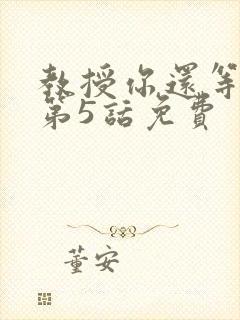 教授你還等
第5話免費
董安